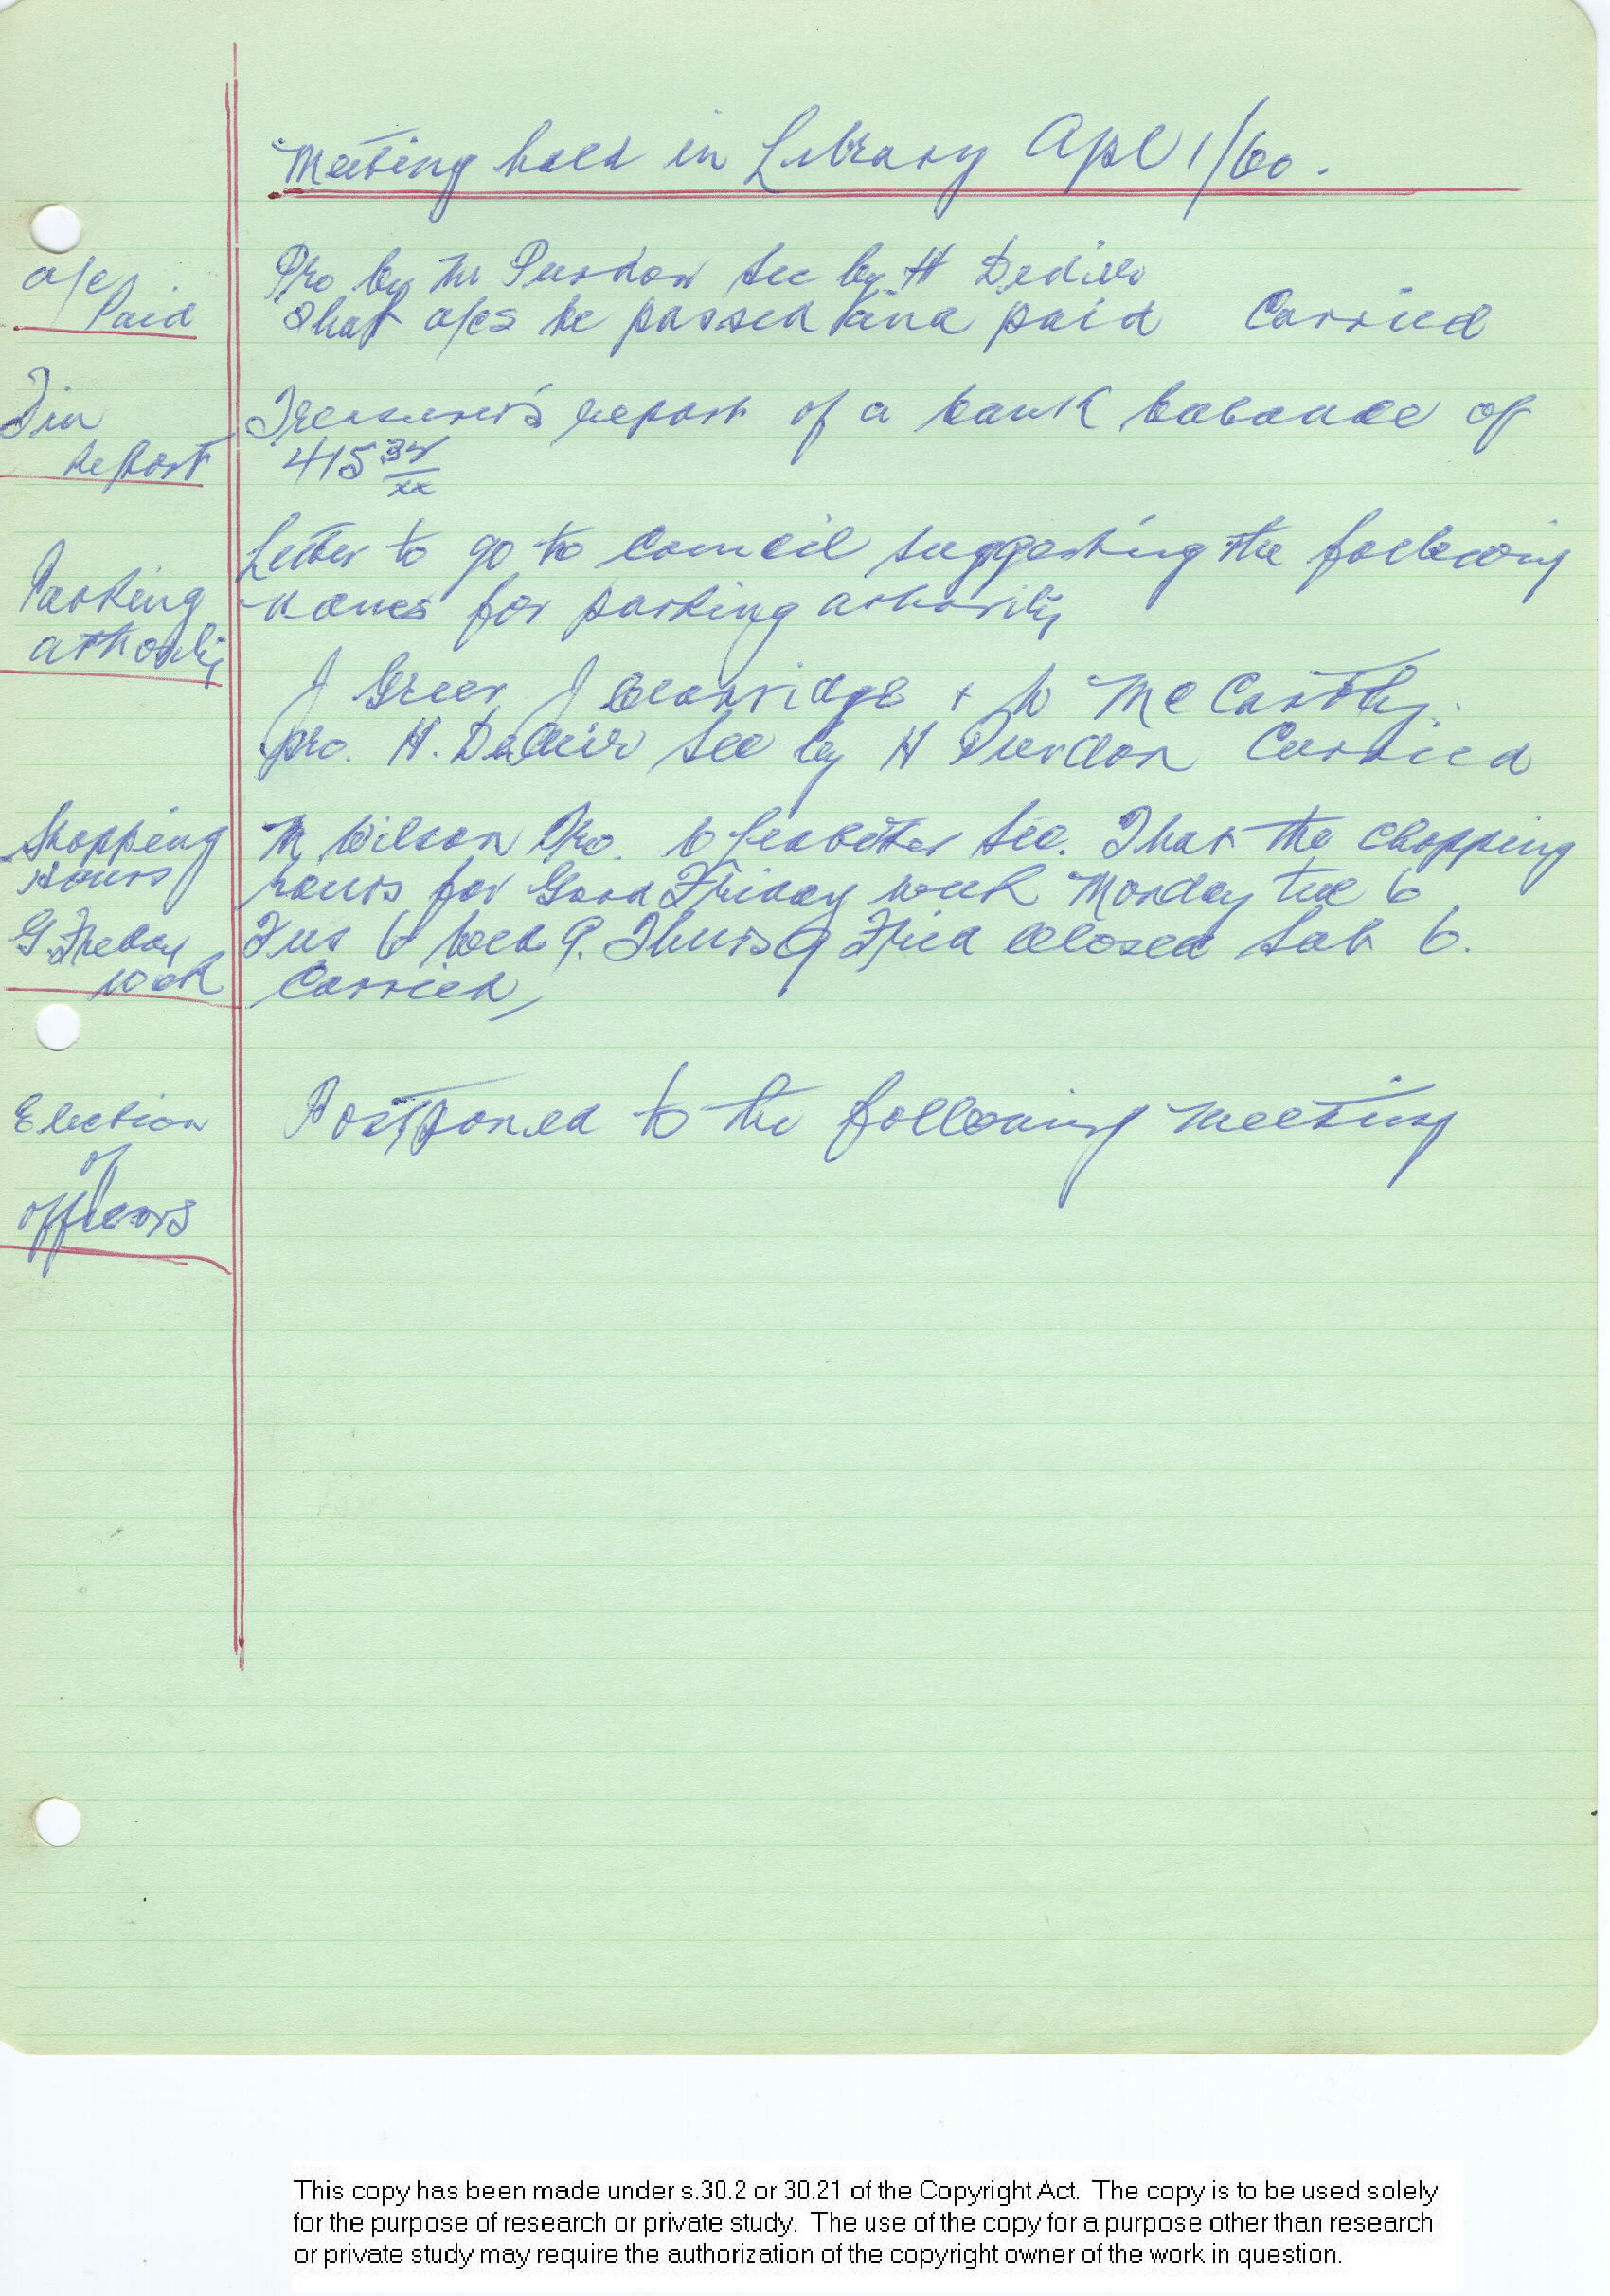 Meeting held in Library Apl 1/60.
a/c
Paid
Pro by Mr Purdon Sec by H
That a/cs be passed and paid Carried
Fin
Report
Treasurer's report of a bank balance of
415
Parking
athority
Letter to go to Council suggesting the following
names for parking athority
J Greer J + W McCarthy.
pro. H. Sec by H Purdon Carried
Shopping
Hours
G. Friday
week
M Wilson Pro. Sec. That the shopping
hours for Good Friday week Monday till 6
Tus 6 Wed 9. Thurs 9 Frid Closed Sat 6.
Carried
Election
of
officers
Postponed to the following meeting
This copy has been made under s.30.2 or 30.21 of the Copyright Act. The copy is to be used solely
for the purpose of research or private study. The use of the copy for a purpose other than research
or private study may require the authorization of the copyright owner of the work in question.